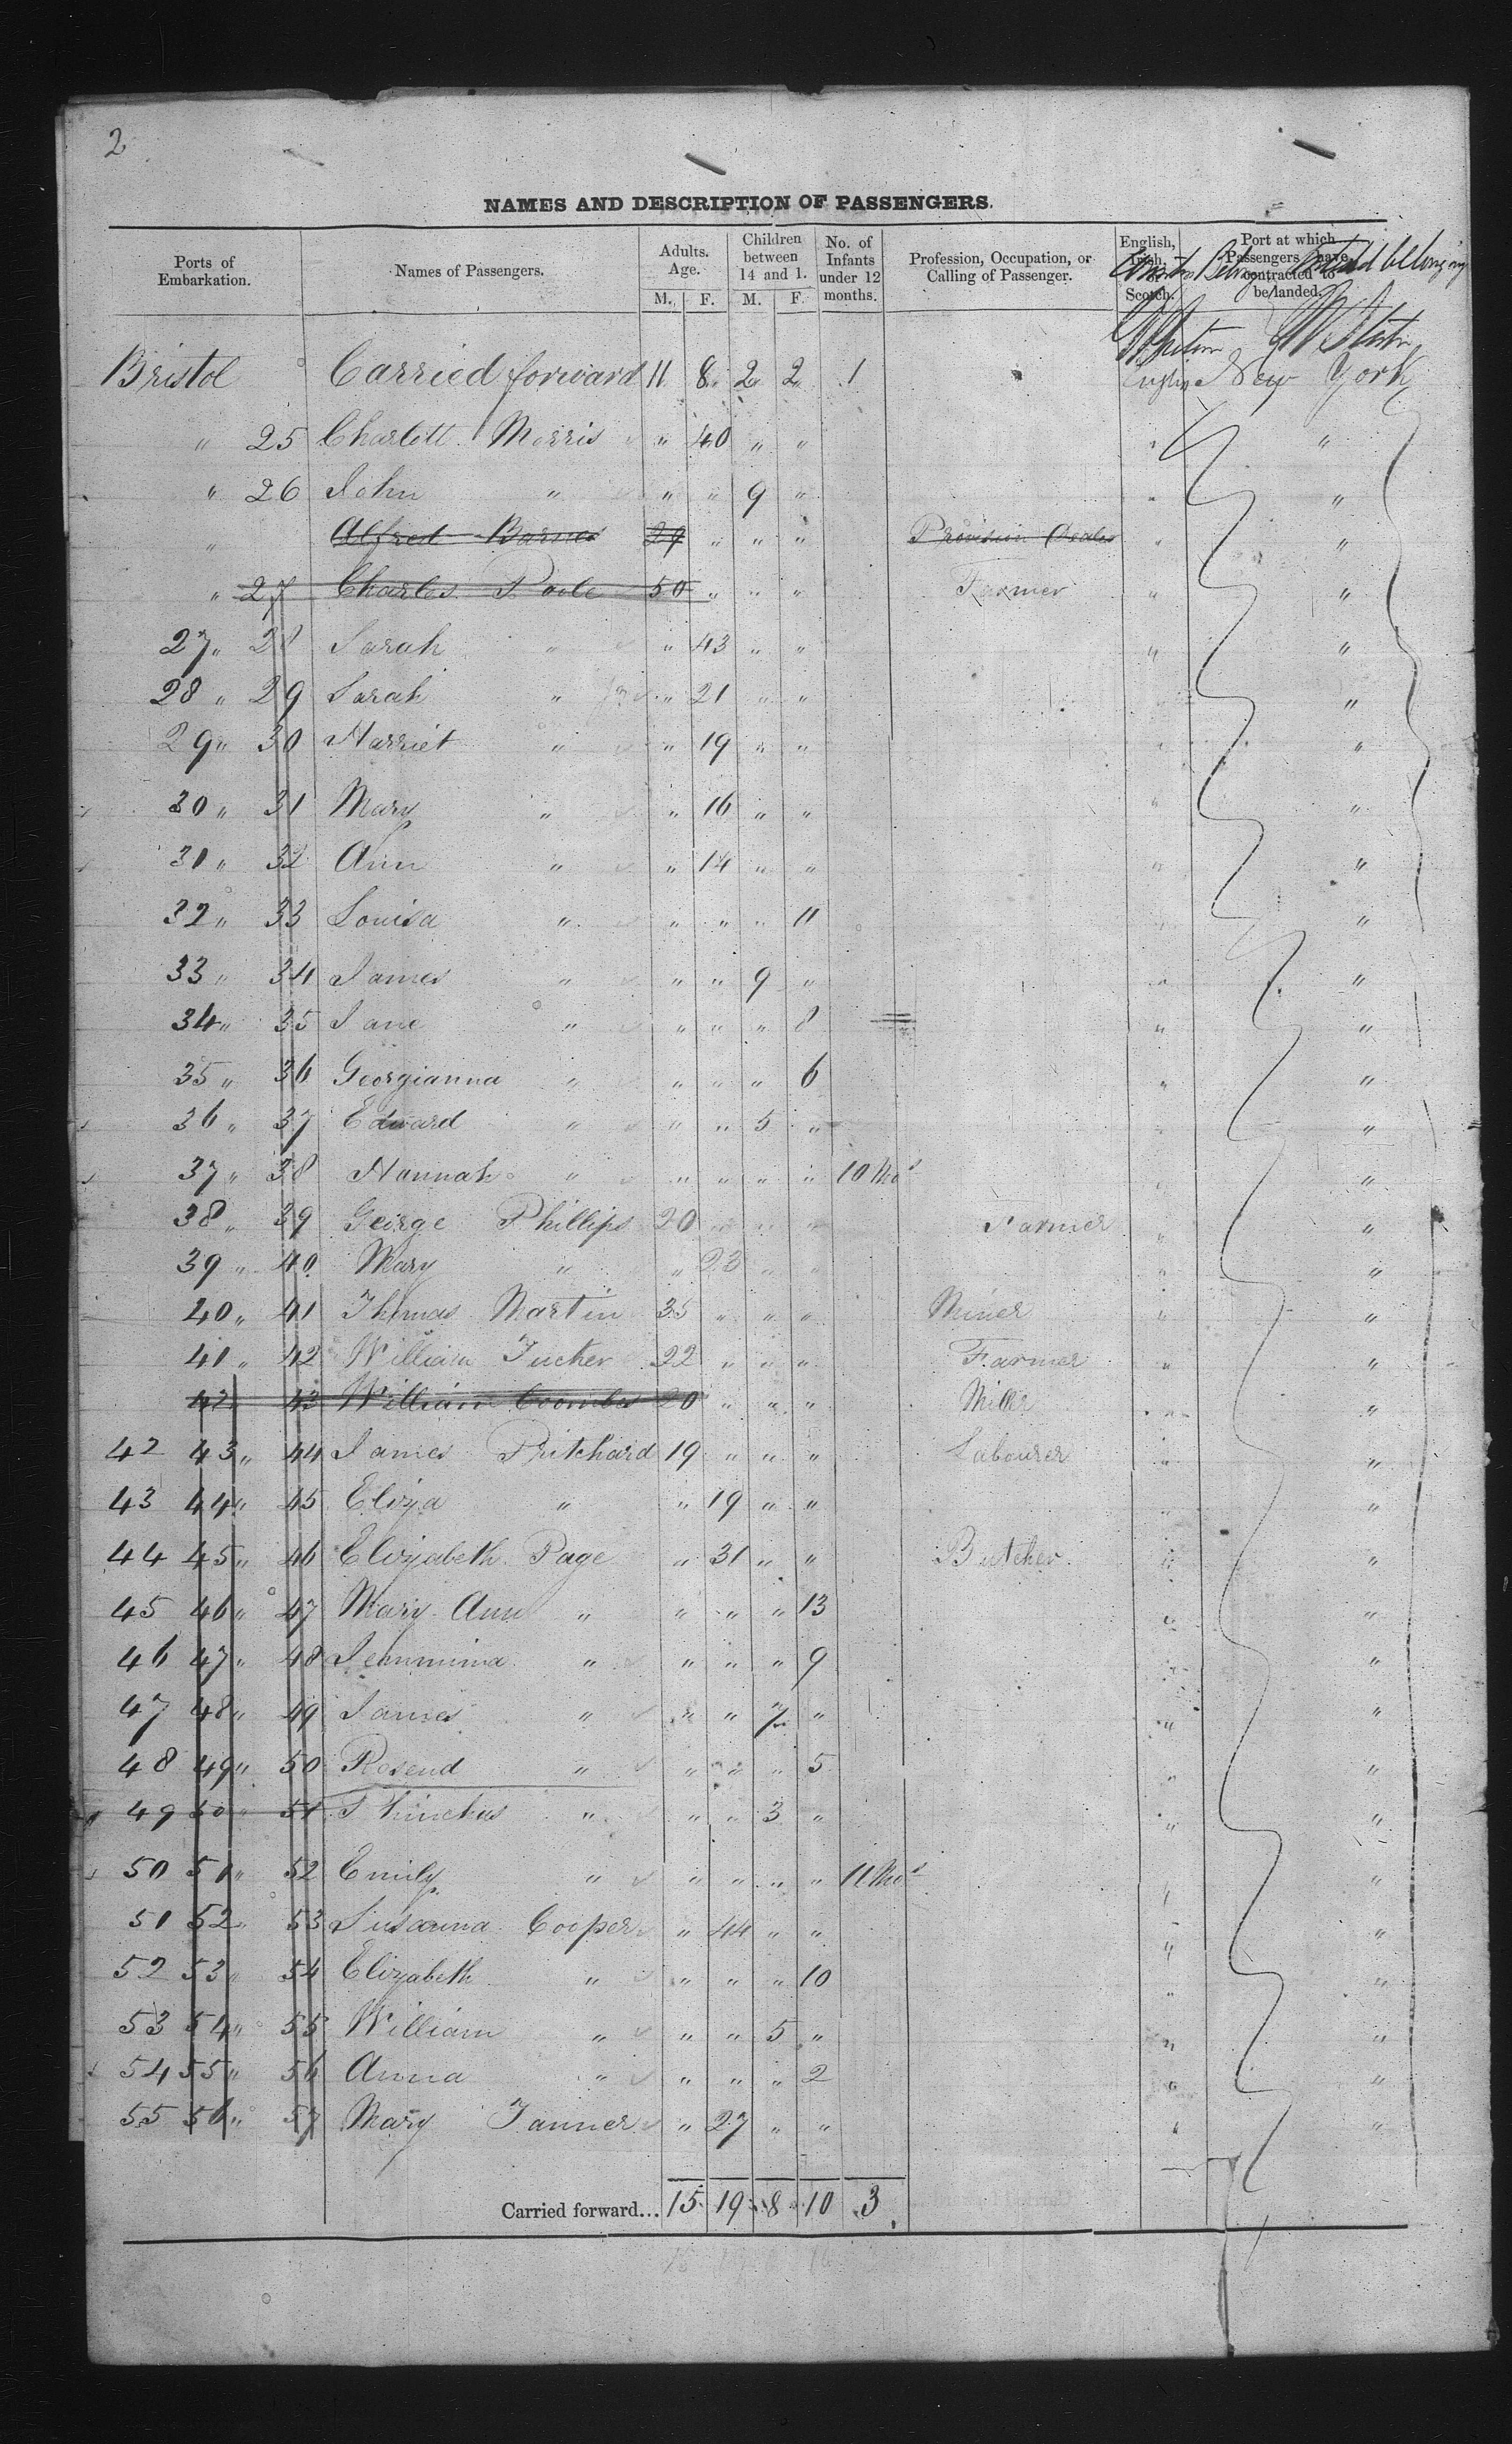 2
NAMES AND DESCRIPTION OF PASSENGERS.
Ports of Embarkation. Names of Passengers. Adults. Age. M. F. Children between 14 and 1. M. F. No. of Infants under 12 months. Profession, Occupation, or Calling of Passenger. English, Irish, or Scotch. Port at which Passengers have contracted to be landed.
Bristol Carried forward 11 8 2 2 1 English New York
" 25 Charlott Morris " 40 " " " "
" 26 John " " " 9 " " "
" Alfred Barnes 29 " " " Provision Dealer " "
" 27 Charles Poole 50 " " " Farmer " "
27 " 28 Sarah " " 43 " " " "
28 " 29 Sarah " " 21 " " " "
29 " 30 Harriet " " 19 " " " "
30 " 31 Mary " " 16 " " " "
31 " 32 Ann " " 14 " " " "
32 " 33 Louisa " " " " 11 " "
33 " 34 James " " " 9 " " "
34 " 35 Jane " " " " 8 " "
35 " 36 Georgianna " " " " 6 " "
36 " 37 Edward " " " 5 " " "
37 " 38 Hannah " " " " " 10 Mos " "
38 " 39 George Phillips 20 " " " Farmer " "
39 " 40 Mary " " 23 " " " "
40 " 41 Thomas Martin 35 " " " Miner " "
41 " 42 William Tucker 22 " " " Farmer " "
42 43 William Coombs 20 " " " Miller " "
42 43 " 44 James Pritchard 19 " " " Labourer " "
43 44 " 45 Eliza " " 19 " " " "
44 45 " 46 Elizabeth Page " 31 " " Butcher " "
45 46 " 47 Mary Ann " " " " 13 " "
46 47 " 48 Jemmima " " " " 9 " "
47 48 " 49 James " " " 7 " " "
48 49 " 50 Rosend " " " " 5 " "
49 50 " 51 Phinehas " " " 3 " " "
50 51 " 52 Emily " " " " " 11 Mos " "
51 52 " 53 Susanna Cooper " 44 " " " "
52 53 " 54 Elizabeth " " " " 10 " "
53 54 " 55 William " " " 5 " " "
54 55 " 56 Anna " " " " 2 " "
55 56 " 57 Mary Tanner " 27 " " " "
Carried forward... 15 19 8 10 3